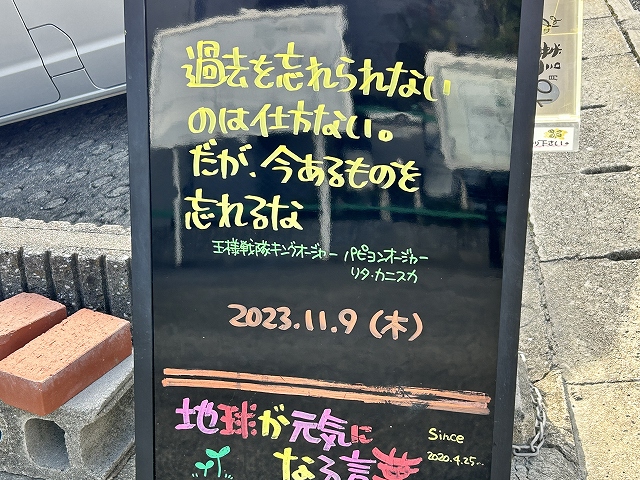 過去を忘れられない
のは仕方ない。
だが、今あるものを
忘れるな
王様戦隊キングオージャー パピヨンオージャー
リタ・カニスカ
2023.11.9 (木)
地球が元気に
なる言葉
Since
2020.4.25...